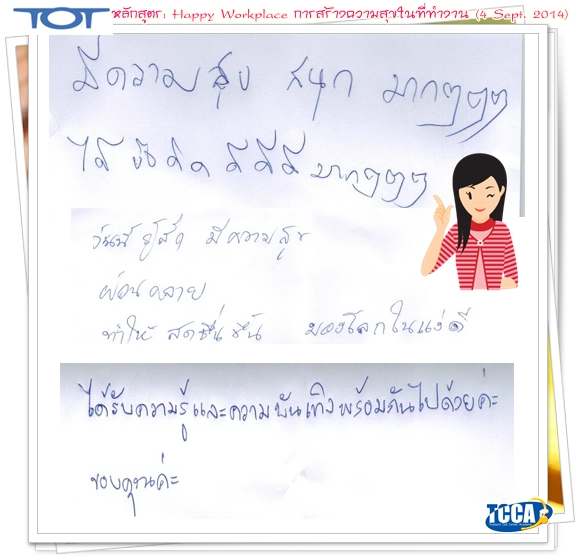 TOT หลักสูตร: Happy Workplace การสร้างความสุขในที่ทำงาน (4 Sept. 2014)
มีความสุข สนุก มากๆๆๆ
ได้ ข้อคิด ดีดีดี มากๆๆๆ
วันนี้ รู้สึก มีความสุข
ผ่อนคลาย
ทำให้ สดชื่นขึ้น มองโลกในแง่ดี
ได้รับความรู้และความบันเทิงพร้อมกันไปด้วยค่ะ
ขอบคุณค่ะ
TCCA